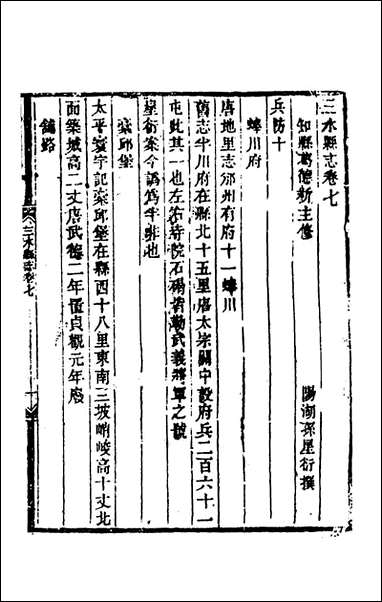 三水縣志卷七
知縣葛德新主修
陽湖孫星衍撰
兵防十
蜯川府
唐地里志邠州有府十一蜯川
舊志半川府在縣北十五里唐太宗關中設府兵二百六十一
屯此其一也左右持院石碣皆勒武義將軍之號
星衍案今譌爲半非也
梁邱堡
太平寰宇記梁邱堡在縣西十八里東南三坡峭峻高十丈北
面築城高二丈唐武德二年置貞觀元年廢
鋪路
三水縣志卷七
一